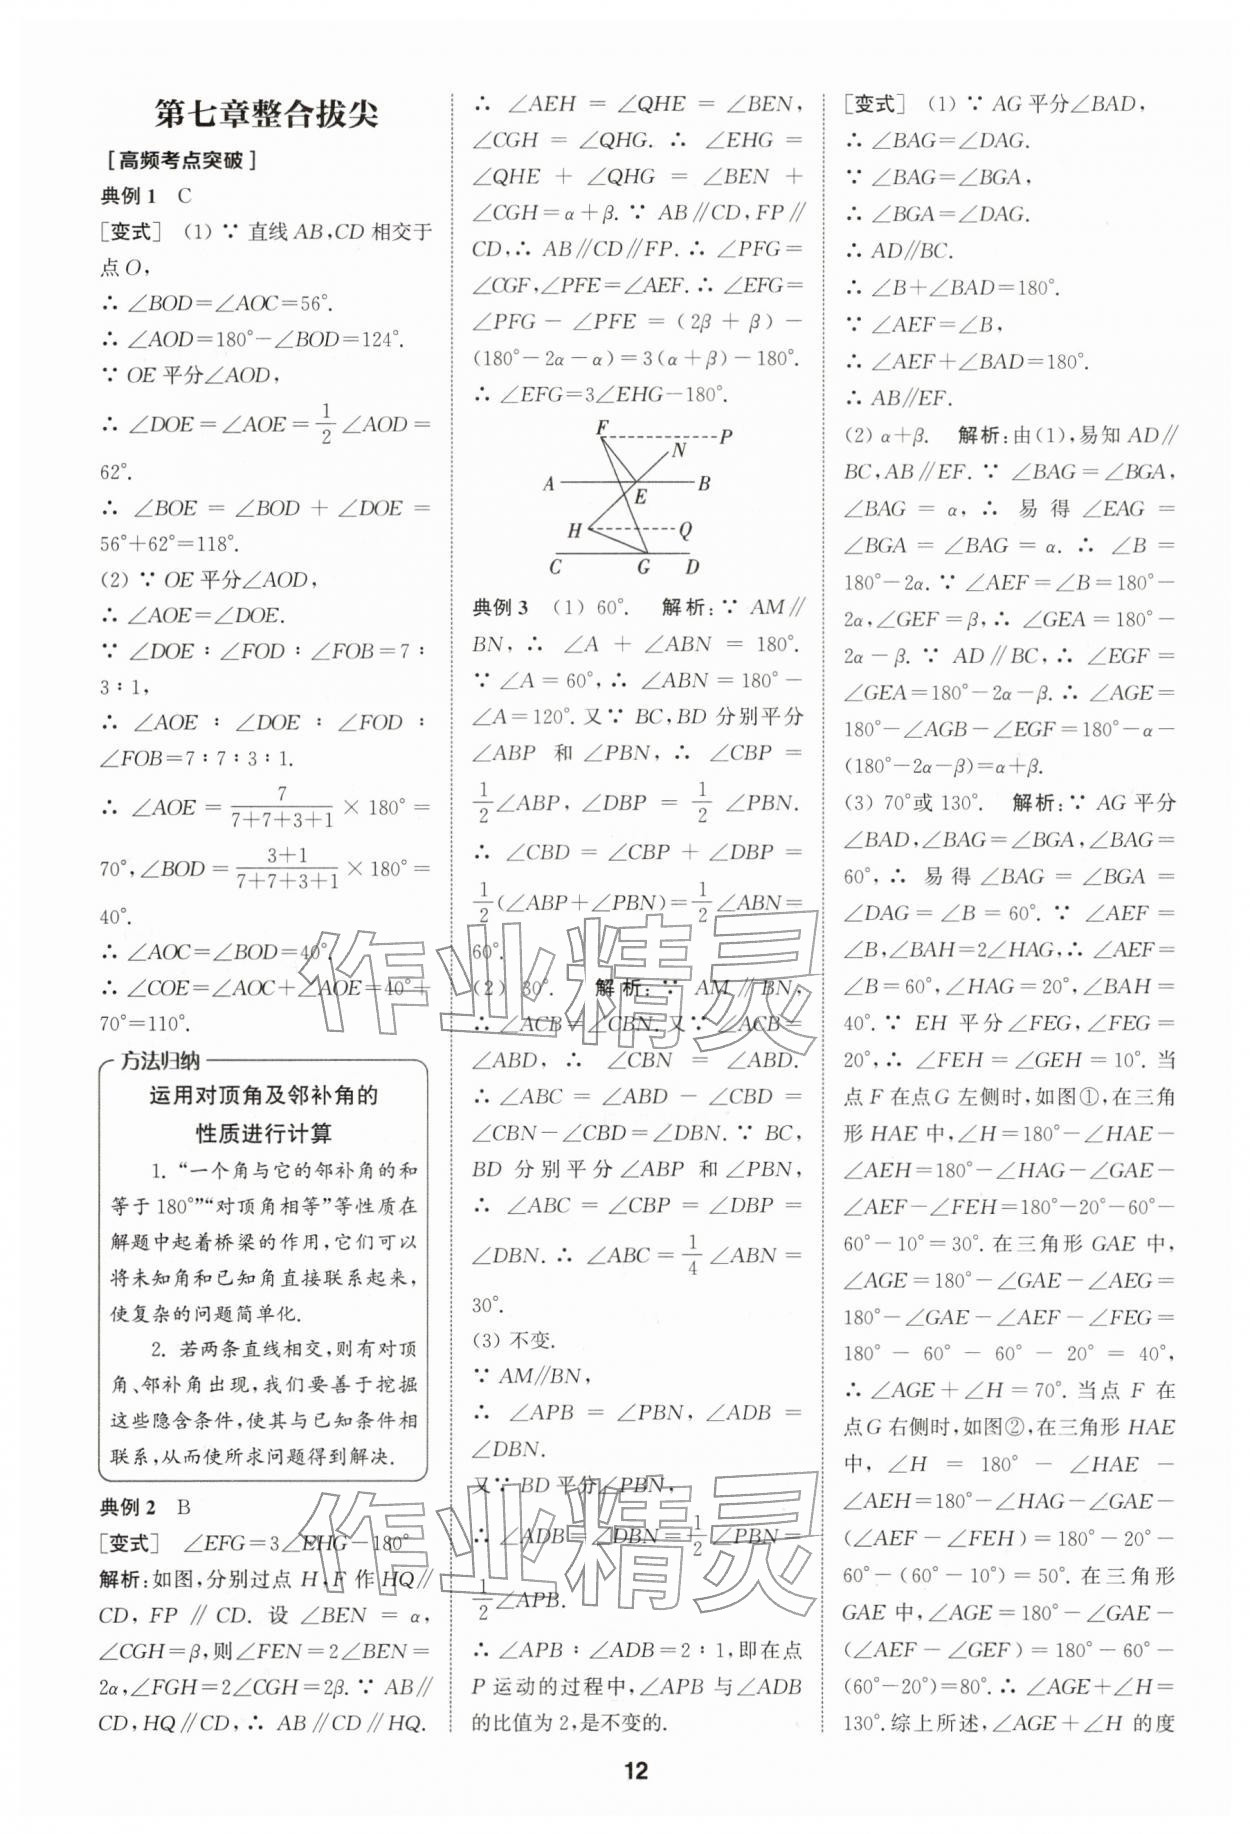 第七章整合拔尖
[高频考点突破]
典例1 C
[变式] (1) ∵ 直线AB,CD相交于
点O,
∴ ∠BOD=∠AOC=56°.
∴ ∠AOD=180°-∠BOD=124°.
∵ OE平分∠AOD,
∴ ∠DOE=∠AOE=1/2∠AOD=
62°.
∴ ∠BOE=∠BOD+∠DOE=
56°+62°=118°.
(2) ∵ OE平分∠AOD,
∴ ∠AOE=∠DOE.
∵ ∠DOE∶∠FOD∶∠FOB=7∶
3∶1,
∴ ∠AOE∶∠DOE∶∠FOD∶
∠FOB=7∶7∶3∶1.
∴ ∠AOE=7/(7+7+3+1)×180°=
70°,∠BOD=(3+1)/(7+7+3+1)×180°=
40°.
∴ ∠AOC=∠BOD=40°.
∴ ∠COE=∠AOC+∠AOE=40°+
70°=110°.
方法归纳
运用对顶角及邻补角的
性质进行计算
1. “一个角与它的邻补角的和
等于180°”“对顶角相等”等性质在
解题中起着桥梁的作用,它们可以
将未知角和已知角直接联系起来,
使复杂的问题简单化.
2. 若两条直线相交,则有对顶
角、邻补角出现,我们要善于挖掘
这些隐含条件,使其与已知条件相
联系,从而使所求问题得到解决.
典例2 B
[变式] ∠EFG=3∠EHG-180°
解析:如图,分别过点H,F作HQ∥
CD,FP∥CD. 设∠BEN=α,
∠CGH=β,则∠FEN=2∠BEN=
2α,∠FGH=2∠CGH=2β. ∵ AB∥
CD,HQ∥CD,∴ AB∥CD∥HQ.
∴ ∠AEH=∠QHE=∠BEN,
∠CGH=∠QHG. ∴ ∠EHG=
∠QHE+∠QHG=∠BEN+
∠CGH=α+β. ∵ AB∥CD,FP∥
CD,∴ AB∥CD∥FP. ∴ ∠PFG=
∠CGF,∠PFE=∠AEF. ∴ ∠EFG=
∠PFG-∠PFE=(2β+β)-
(180°-2α-α)=3(α+β)-180°.
∴ ∠EFG=3∠EHG-180°.
F P
N
A E B
H Q
C G D
典例3 (1) 60°. 解析:∵ AM∥
BN,∴ ∠A+∠ABN=180°.
∵ ∠A=60°,∴ ∠ABN=180°-
∠A=120°. 又∵ BC,BD分别平分
∠ABP和∠PBN,∴ ∠CBP=
1/2∠ABP,∠DBP=1/2∠PBN.
∴ ∠CBD=∠CBP+∠DBP=
1/2(∠ABP+∠PBN)=1/2∠ABN=
60°.
(2) 30°. 解析:∵ AM∥BN,
∴ ∠ACB=∠CBN. 又∵ ∠ACB=
∠ABD,∴ ∠CBN=∠ABD.
∴ ∠ABC=∠ABD-∠CBD=
∠CBN-∠CBD=∠DBN. ∵ BC,
BD分别平分∠ABP和∠PBN,
∴ ∠ABC=∠CBP=∠DBP=
∠DBN. ∴ ∠ABC=1/4∠ABN=
30°.
(3) 不变.
∵ AM∥BN,
∴ ∠APB=∠PBN,∠ADB=
∠DBN.
又∵ BD平分∠PBN,
∴ ∠ADB=∠DBN=1/2∠PBN=
1/2∠APB.
∴ ∠APB∶∠ADB=2∶1,即在点
P运动的过程中,∠APB与∠ADB
的比值为2,是不变的.
[变式] (1) ∵ AG平分∠BAD,
∴ ∠BAG=∠DAG.
∵ ∠BAG=∠BGA,
∴ ∠BGA=∠DAG.
∴ AD∥BC.
∴ ∠B+∠BAD=180°.
∵ ∠AEF=∠B,
∴ ∠AEF+∠BAD=180°.
∴ AB∥EF.
(2) α+β. 解析:由(1),易知AD∥
BC,AB∥EF. ∵ ∠BAG=∠BGA,
∠BAG=α,∴ 易得∠EAG=
∠BGA=∠BAG=α. ∴ ∠B=
180°-2α. ∵ ∠AEF=∠B=180°-
2α,∠GEF=β,∴ ∠GEA=180°-
2α-β. ∵ AD∥BC,∴ ∠EGF=
∠GEA=180°-2α-β. ∴ ∠AGE=
180°-∠AGB-∠EGF=180°-α-
(180°-2α-β)=α+β.
(3) 70°或130°. 解析:∵ AG平分
∠BAD,∠BAG=∠BGA,∠BAG=
60°,∴ 易得∠BAG=∠BGA=
∠DAG=∠B=60°. ∵ ∠AEF=
∠B,∠BAH=2∠HAG,∴ ∠AEF=
∠B=60°,∠HAG=20°,∠BAH=
40°. ∵ EH平分∠FEG,∠FEG=
20°,∴ ∠FEH=∠GEH=10°. 当
点F在点G左侧时,如图①,在三角
形HAE中,∠H=180°-∠HAE-
∠AEH=180°-∠HAG-∠GAE-
∠AEF-∠FEH=180°-20°-60°-
60°-10°=30°. 在三角形GAE中,
∠AGE=180°-∠GAE-∠AEG=
180°-∠GAE-∠AEF-∠FEG=
180°-60°-60°-20°=40°,
∴ ∠AGE+∠H=70°. 当点F在
点G右侧时,如图②,在三角形HAE
中,∠H=180°-∠HAE-
∠AEH=180°-∠HAG-∠GAE-
(∠AEF-∠FEH)=180°-20°-
60°-(60°-10°)=50°. 在三角形
GAE中,∠AGE=180°-∠GAE-
(∠AEF-∠GEF)=180°-60°-
(60°-20°)=80°. ∴ ∠AGE+∠H=
130°. 综上所述,∠AGE+∠H的度
12
作业精灵
作业精灵